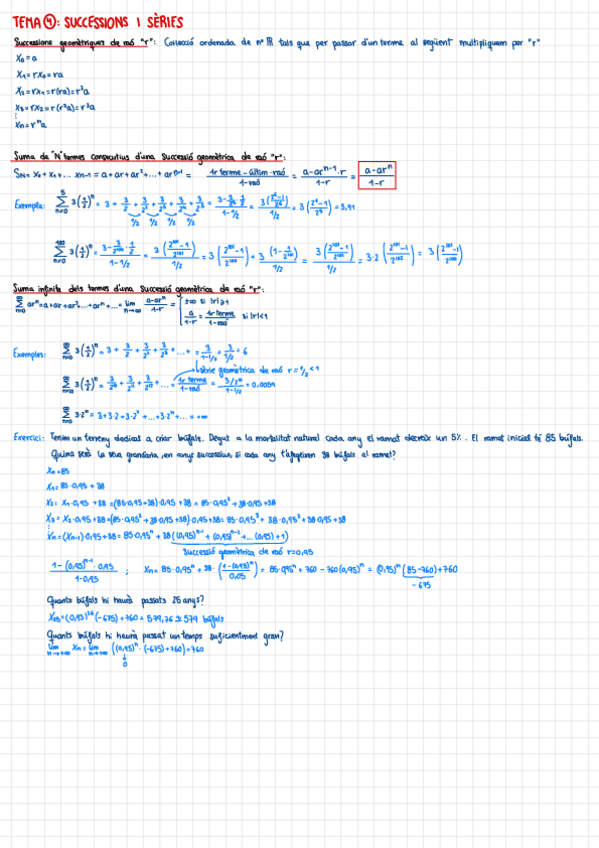 TEMA 4: SUCCESSIONS I SÈRIES
Successions geomètriques de raó "r": Col·lecció ordenada de nº ℝ tals que per passar d'un terme al següent multipliquem per "r"
X₀ = a
X₁ = rX₀ = ra
X₂ = rX₁ = r(ra) = r²a
X₃ = rX₂ = r(r²a) = r³a
⋮
Xₙ = rⁿa
Suma de "N" termes consecutius d'una successió geomètrica de raó "r":
Sɴ = X₀ + X₁ + ... Xₙ₋₁ = a + ar + ar² + ... + arⁿ⁻¹ = (1r terme − últim·raó)/(1−raó) = (a − arⁿ⁻¹·r)/(1−r) = (a − arⁿ)/(1−r)
Exemple: Σ 3(1/2)ⁿ = 3 + 3/2 + 3/2² + 3/2³ + 3/2⁴ + 3/2⁵
1/2 1/2 1/2 1/2
Suma infinita dels termes d'una successió geomètrica de raó "r":
Σ arⁿ = a + ar + ar² + ... + arⁿ + ... = lim n→∞ (a − arⁿ)/(1−r) = { ±∞ si |r| ≥ 1
a/(1−r) = 1r terme/(1−raó) si |r| < 1
Exemples: Σ 3(1/2)ⁿ = 3 + 3/2 + 3/2² + 3/2³ + ... + = 3/(1−1/2) = 3/(1/2) = 6
sèrie geomètrica de raó r = 1/2 < 1
Σ 3·2ⁿ = 3 + 3·2 + 3·2² + ... + 3·2ⁿ + ... = +∞
Exercici: Tenim un terreny dedicat a criar búfals. Degut a la mortalitat natural cada any el ramat decreix un 5%. El ramat inicial té 85 búfals.
Quina serà la seva grandària, en anys successius, si cada any s'afegeixen 38 búfals al ramat?
X₀ = 85
X₁ = 85·0,95 + 38
X₂ = X₁·0,95 + 38 = (85·0,95 + 38)·0,95 + 38 = 85·0,95² + 38·0,95 + 38
X₃ = X₂·0,95 + 38 = (85·0,95² + 38·0,95 + 38)·0,95 + 38 = 85·0,95³ + 38·0,95² + 38·0,95 + 38
⋮
Xₙ = (Xₙ₋₁)·0,95 + 38 = 85·0,95ⁿ + 38((0,95)ⁿ⁻¹ + (0,95)ⁿ⁻² + ... (0,95) + 1)
Successió geomètrica de raó r = 0,95
(1 − (0,95)ⁿ⁻¹·0,95)/(1 − 0,95) ; Xₙ = 85·0,95ⁿ + 38·((1 − (0,95)ⁿ)/0,05) = 85·0,95ⁿ + 760 − 760(0,95)ⁿ = (0,95)ⁿ(85 − 760) + 760
−675
Quants búfals hi haurà passats 26 anys?
X₂₆ = (0,95)²⁶(−675) + 760 = 579,26 ≅ 579 búfals
Quants búfals hi haurà passat un temps suficientment gran?
lim n→+∞ Xₙ = lim n→+∞ ((0,95)ⁿ·(−675) + 760) = 760
↓
0